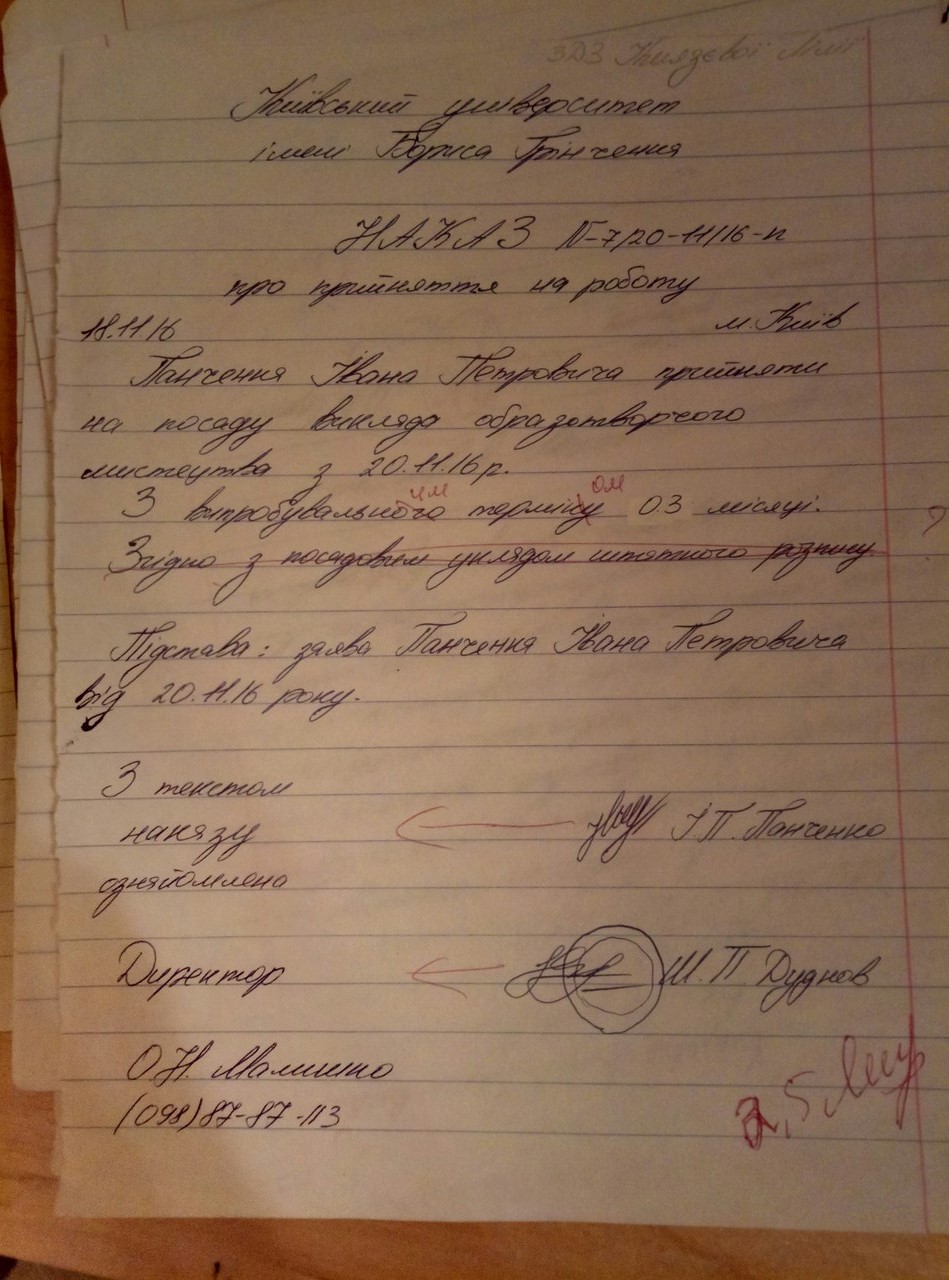 ЗДЗ Князєвої Лілії
Київський університет
імені Бориса Грінчення
НАКАЗ №7/20-11/16-п
про прийняття на роботу
18.11.16 м. Київ
Панчення Івана Петровича прийняти
на посаду викляда образотворчого
мистецтва з 20.11.16 р.
им ом
З випробувального терміну 03 місяці. ?
Згідно з посадовим укладом штатного розпису
Підстава: заява Панчення Івана Петровича
від 20.11.16 року.
З текстом
наказу І.П. Панченко
ознайомлена
Директор М. П Дуднов
О.Н. Малишко
(098)87-87-113
2,5